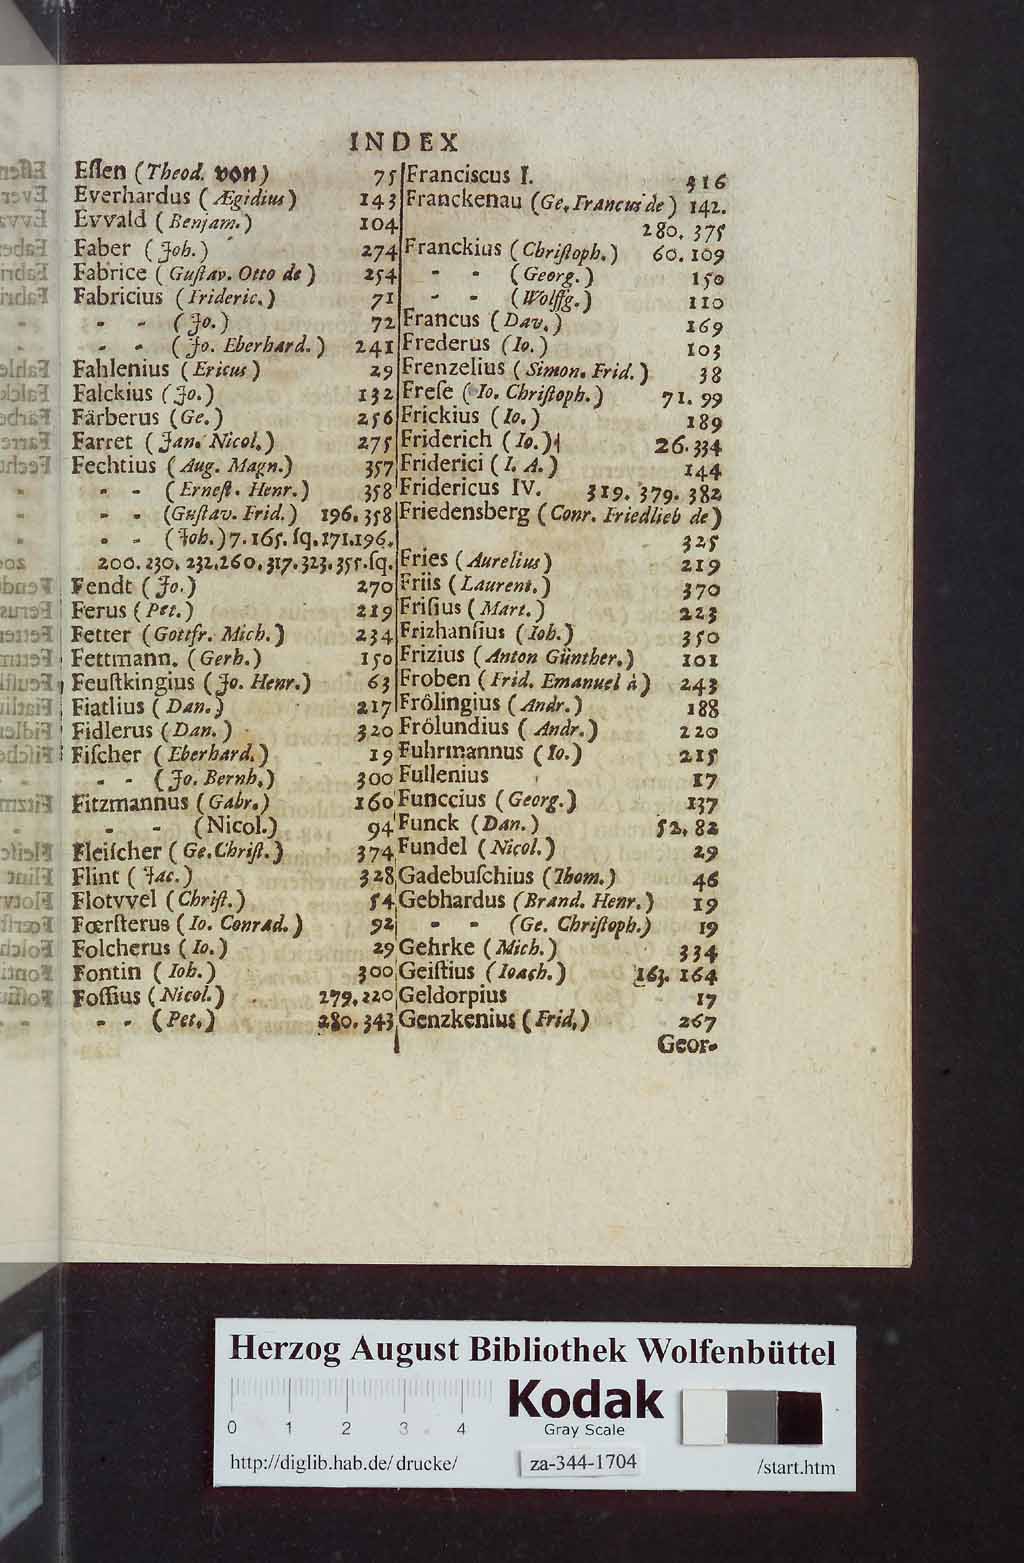 INDEX
Eſſen (Theod. von) 75
Everhardus (Ægidius) 143
Evvald (Benjam.) 104
Faber (Joh.) 274
Fabrice (Guſtav. Otto de) 254
Fabricius (Frideric.) 71
- - (Jo.) 72
- - (Jo. Eberhard.) 241
Fahlenius (Ericus) 29
Falckius (Jo.) 132
Färberus (Ge.) 256
Farret (Jan. Nicol.) 275
Fechtius (Aug. Magn.) 357
- - (Erneſt. Henr.) 358
- - (Guſtav. Frid.) 196. 358
- - (Joh.) 7. 165. ſq. 171. 196.
200. 230. 232. 260. 317. 323. 355. ſq.
Fendt (Jo.) 270
Ferus (Pet.) 219
Fetter (Gottfr. Mich.) 234
Fettmann. (Gerh.) 150
Feuſtkingius (Jo. Henr.) 63
Fiatlius (Dan.) 217
Fidlerus (Dan.) 320
Fiſcher (Eberhard.) 19
- - (Jo. Bernh.) 300
Fitzmannus (Gabr.) 160
- - (Nicol.) 94
Fleiſcher (Ge. Chriſt.) 374
Flint (Jac.) 328
Flotvvel (Chriſt.) 54
Fœrſterus (Io. Conrad.) 92
Folcherus (Io.) 29
Fontin (Ioh.) 300
Foſſius (Nicol.) 279. 220
- - (Pet.) 280. 343
Franciscus I. 316
Franckenau (Ge. Francus de) 142.
280. 375
Franckius (Chriſtoph.) 60. 109
- - (Georg.) 150
- - (Wolffg.) 110
Francus (Dav.) 169
Frederus (Io.) 103
Frenzelius (Simon. Frid.) 38
Freſe (Io. Chriſtoph.) 71. 99
Frickius (Io.) 189
Friderich (Io.) 26. 334
Friderici (I. A.) 144
Fridericus IV. 319. 379. 382
Friedensberg (Conr. Friedlieb de)
325
Fries (Aurelius) 219
Friis (Laurent.) 370
Friſius (Mart.) 223
Frizhanſius (Ioh.) 350
Frizius (Anton Günther.) 101
Froben (Frid. Emanuel à) 243
Frölingius (Andr.) 188
Frölundius (Andr.) 220
Fuhrmannus (Io.) 215
Fullenius 17
Funccius (Georg.) 137
Funck (Dan.) 52. 82
Fundel (Nicol.) 29
Gadebuſchius (Thom.) 46
Gebhardus (Brand. Henr.) 19
- - (Ge. Chriſtoph.) 19
Gehrke (Mich.) 334
Geiſtius (Ioach.) 163. 164
Geldorpius 17
Genzkenius (Frid.) 267
Geor-
Herzog August Bibliothek Wolfenbüttel
0 1 2 3 4
Kodak
Gray Scale
http://diglib.hab.de/drucke/
za-344-1704
/start.htm